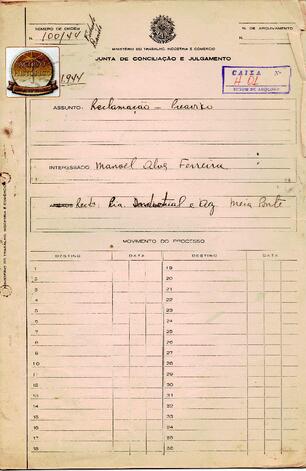 NÚMERO DE ORDEM
N. 100/44
1944
N. DE ARQUIVAMENTO
N.
MINISTÉRIO DO TRABALHO, INDÚSTRIA E COMÉRCIO
JUNTA DE CONCILIAÇÃO E JULGAMENTO
CAIXA Nº
A 01
ASSUNTO: Reclamação -
INTERESSADO Manoel Alves Ferreira
Cia. Industrial e Meia Ponte
MOVIMENTO DO PROCESSO
DESTINO DATA DESTINO DATA
1 19
2 20
3 21
4 22
5 23
6 24
7 25
8 26
9 27
10 28
11 29
12 30
13 31
14 32
15 33
16 34
17 35
18 36